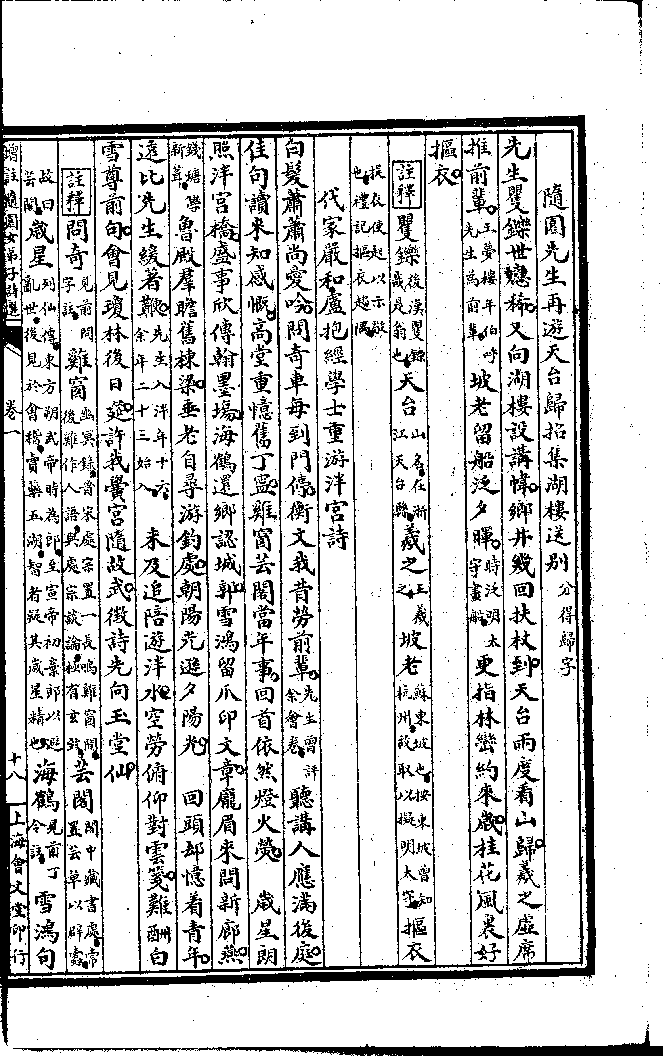 隨園先生再遊天台歸招集湖樓送別 分得歸字
先生矍鑠世應稀又向湖樓設講帷鄉井幾回扶杖到天台兩度看山歸羲之虛席
推前輩 王夢樓年伯呼先生為前輩 坡老留船泛夕暉 時汝明太守畫船 更指林巒約來歲桂花風裏好
摳衣
註釋 矍鑠 後漢矍鑠哉是翁也 天台 山名在浙江天台縣 羲之 王羲之 坡老 蘇東坡也按東坡曾知杭州故取以擬明太守 摳衣
提衣使起以示敬也禮記摳衣趨隅
代家嚴和盧抱經學士重游泮宮詩
白髮蕭蕭尚愛吟問奇車每到門停衡文我昔勞前輩 先生曾評余會卷 聽講人應滿後庭
佳句讀來知感慨高堂重憶舊丁寧雞窗芸閣當年事回首依然燈火熒 歲星朗
照泮宮橋盛事欣傳翰墨場海鶴還鄉認城郭雪鴻留爪印文章龐眉來問新廊燕
錢塘黌新葺 魯殿羣瞻舊棟梁垂老自尋游釣處朝陽光遜夕陽光 回頭却憶着青年
遠比先生緩著鞭 先生入泮年十六余年二十三始入 未及追陪遊泮水空勞俯仰對雲箋難酬白
雪尊前句會見瓊林後日筵許我黌宮隨故武徵詩先向玉堂仙
註釋 問奇 見前問字註 雞窗 幽冥錄晉宋處宗置一長鳴雞窗間後雞作人語與處宗談論極有玄致 芸閣 閣中藏書處常置芸草以辟蠹
故曰芸閣 歲星 列仙傳東方朔武帝時為郎至宣帝初棄郎以避亂世後見於會稽賣藥五湖智者疑其歲星精也 海鶴 見前丁令註 雪鴻句
增註隨園女弟子詩選 卷一 十八 上海會文堂印行